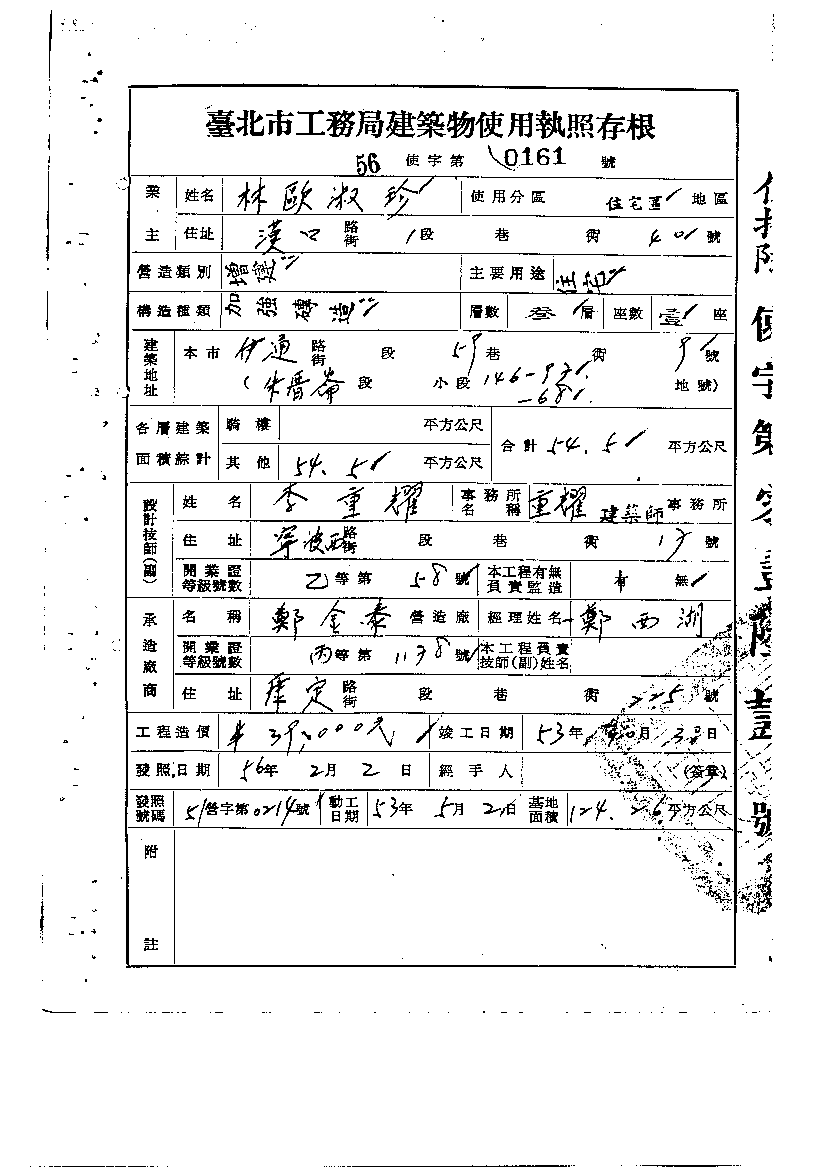 臺北市工務局建築物使用執照存根
56 使字第 0161 號
業主 姓名 林歐淑珍 使用分區 住宅區 地區
住址 漢口 路街 1段 巷 衖 40 號
營造類別 增建 主要用途 住宅
構造種類 加強磚造 層數 叁 層 座數 壹 座
建築地址 本市 伊通 路街 段 59巷 衖 9 號
(朱厝崙段 小段 146-97 -68 地號)
各層建築面積綜計 騎樓 平方公尺 合計 54.5 平方公尺
其他 54.5 平方公尺
設計技師(副) 姓名 李重耀 事務所名稱 重耀 建築師 事務所
住址 寧波西 路街 段 巷 衖 17 號
開業證等級號數 乙等第 58 號 本工程有無負責監造 有 無
承造廠商 名稱 鄭金泰 營造廠 經理姓名 鄭西湖
開業證等級號數 丙等第 1138 號 本工程負責技師(副)姓名
住址 康定 路街 段 巷 衖 225 號
工程造價 39,000元 竣工日期 53年 月 日
發照日期 56年 2月 2日 經手人 (簽章)
發照號碼 51營字第0214號 動工日期 53年 5月 2日 基地面積 124.26 平方公尺
附註
使字第零壹陸壹號